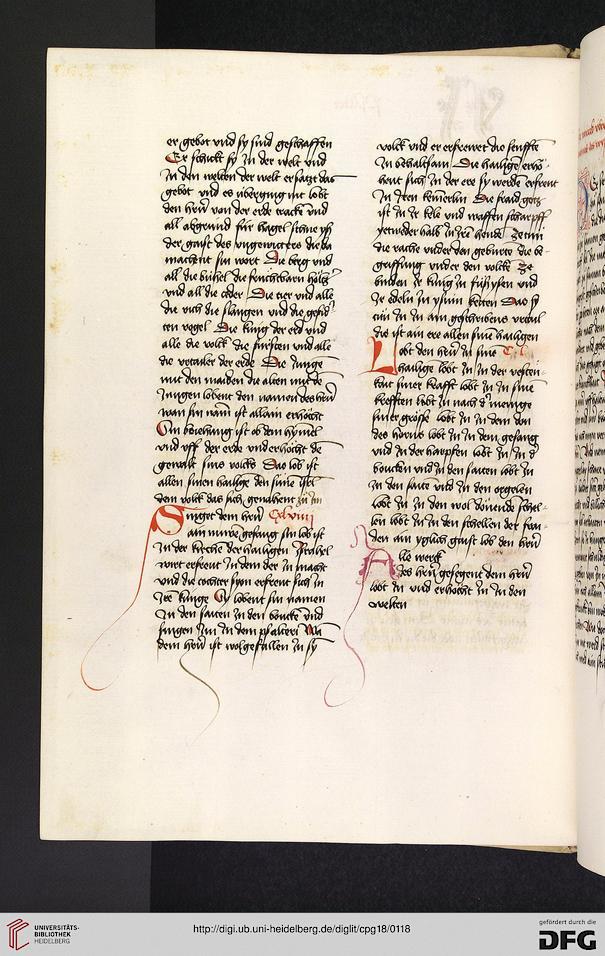 er gebot vnd sy sind geschaffen
Er schickt sy in der welt vnd
in den welten der welt er satzt das
gebot vnd es vbergieng nit lobt
den herren von der erde tracken vnd
all abgrund für hagel schne yß
der gaist des ungewitters die da
machent sin wort Die berg vnd
all die bühel die fruchtbern höltz
vnd all die ceder Die tier vnd alle
die vich die slangen vnd die gefid
ten vogel Die küng der erd vnd
alle die volk die fürsten vnd alle
die vrtailer der erde Die junge
mit den maiden die alten mit de
jungen lobent den namen des herren
wan sin nam ist allain erhöcht
Sin veriehung ist ob dem hymel
vnd vff der erde vnd erhöcht de
gewalt sins volcks Das lob ist
allen sinen hailige den süne israel
dem volk das sich genahent zu im
Singet dem herren Cxlviiii
ain nuwe gesang sin lob ist
in der kirche der hailigen Israhel
wirt erfreut in dem der in macht
vnd die tochter syon erfreut sich in
ire kunge Sy lobent sin namen
in den saiten in den boucken vnd
singen im in dem psalter Wan
dem herren ist wolgefallen in sy
volk vnd er erfrewet die senffte
in behaltsam Die hailige erhö
hent sich in der ere sy werden erfreut
in iren kemerlin Die fraid gotz
ist in ir kele vnd waffen scharpff
yetweder halb in iren hende Ze tun
die rache vnder den geburte die be
greiffung vnder den volck Ze
binden ir küng in füßysen vnd
ir edeln in ysnin ketten Das sy
tün in in ain geschribens vrtail
die ist ain ere allen sine hailigen
Lobt den herren in sine Cl
hailige lobt in in der vesten
kait siner krafft lobt in in sine
krefften lobt in nach der meinge
siner größe lobt in in dem don
des horns lobt in in dem gesang
vnd in der harpfen lobt in in der
boucken vnd in den saiten lobt in
in den saite vnd in den orgelen
lobt in in den wol dönende schel
len lobt in in den schellen der frai
den ain yglich gaist lob den herren
Alle werck
des herren gesegent dem herren
lobt in vnd erhöcht in in den
welten
UNIVERSITÄTS-
BIBLIOTHEK
HEIDELBERG
http://digi.ub.uni-heidelberg.de/diglit/cpg18/0118
gefördert durch die
DFG